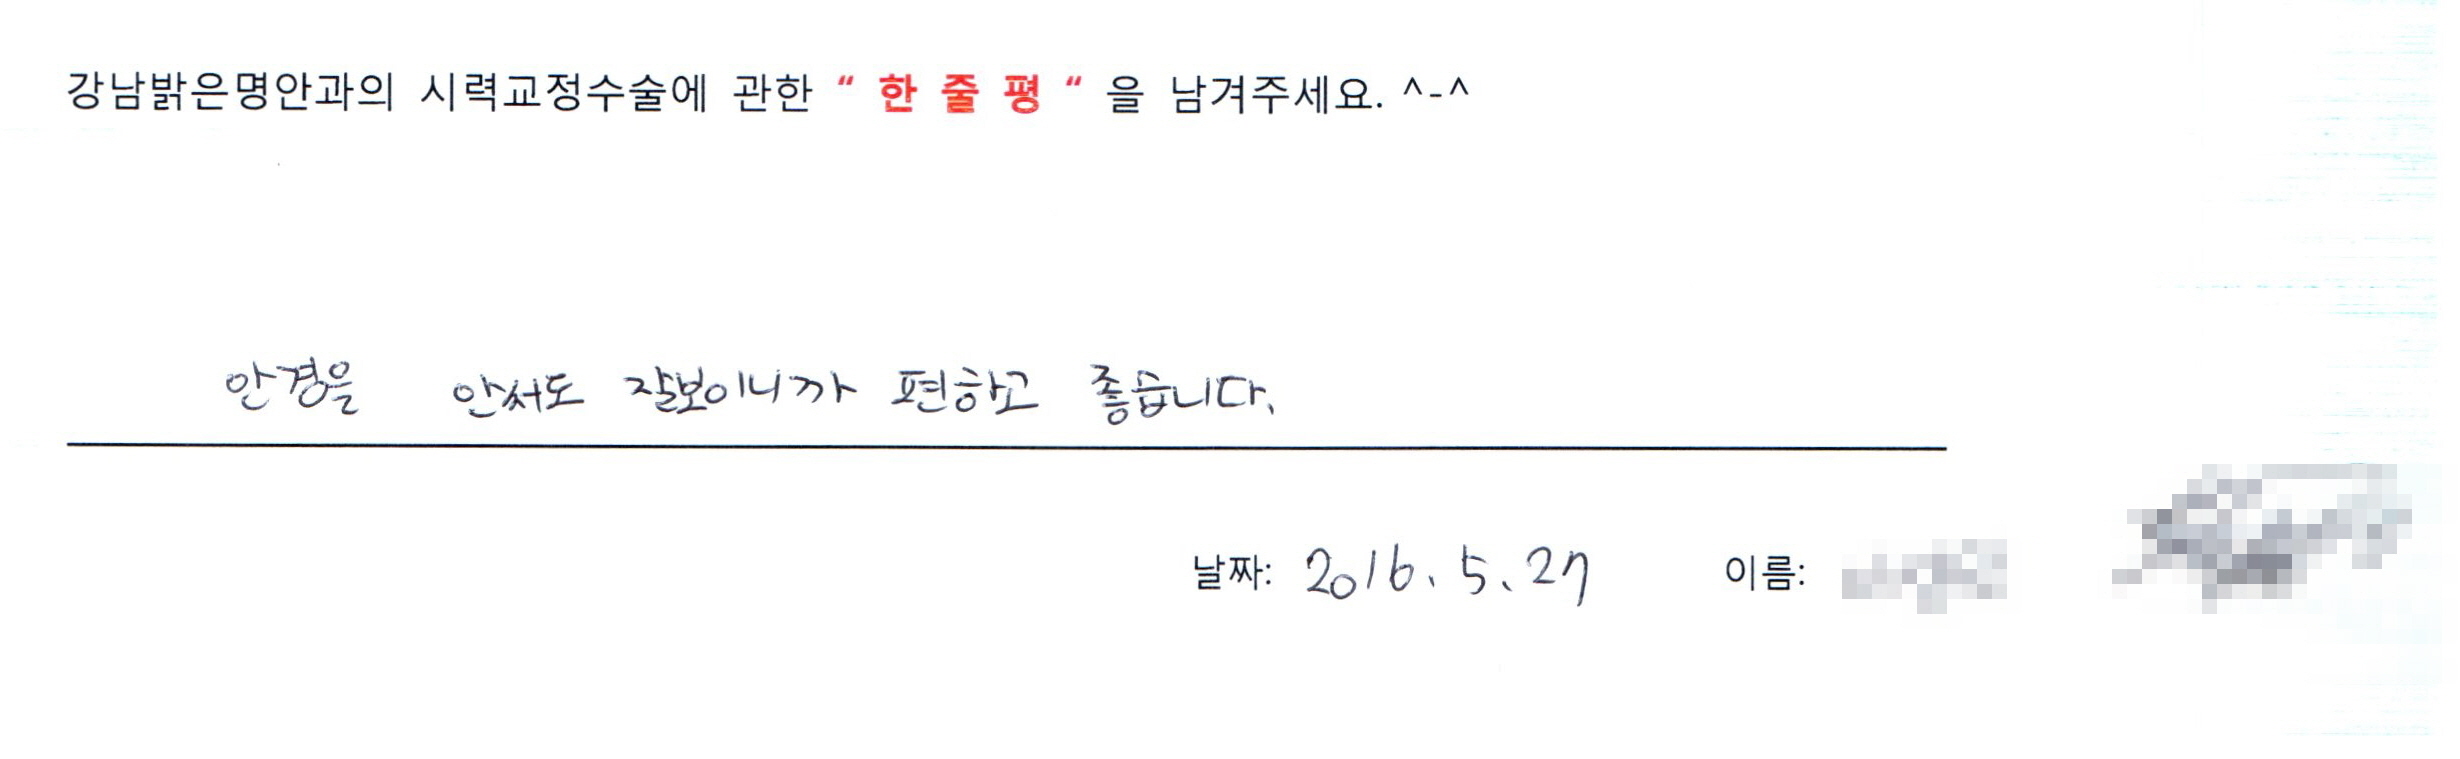 강남밝은명안과의 시력교정수술에 관한 “ 한 줄 평 “ 을 남겨주세요. ^-^
안경을 안써도 잘보이니까 편하고 좋습니다.
날짜: 2016. 5. 27 이름: